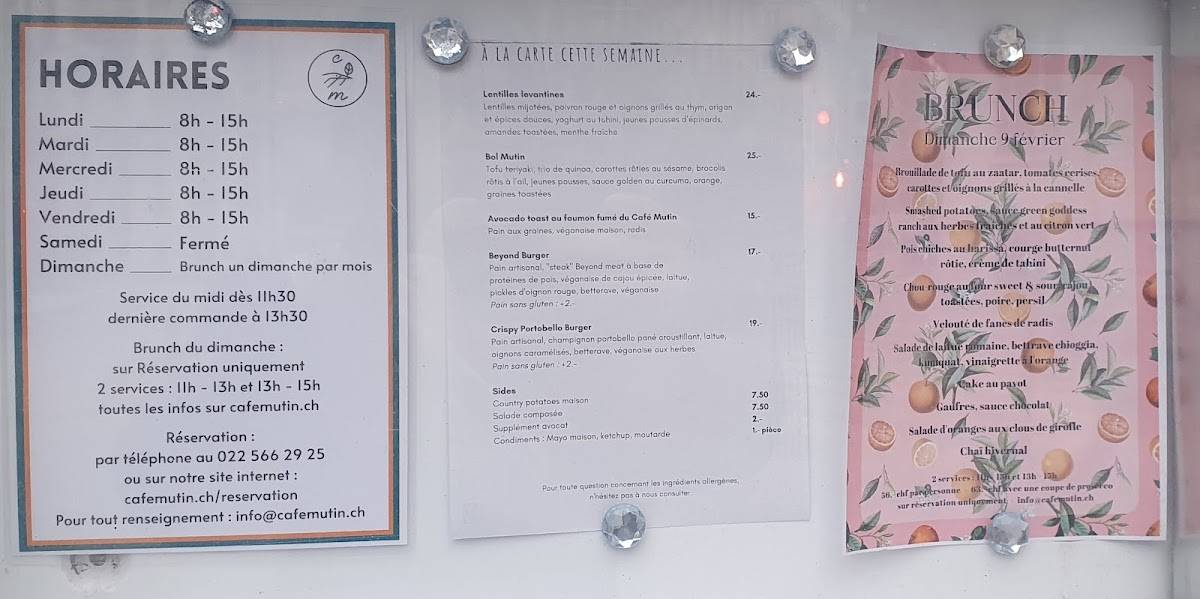 HORAIRES
c
m
Lundi 8h - 15h
Mardi 8h - 15h
Mercredi 8h - 15h
Jeudi 8h - 15h
Vendredi 8h - 15h
Samedi Fermé
Dimanche Brunch un dimanche par mois
Service du midi dès 11h30
dernière commande à 13h30
Brunch du dimanche :
sur Réservation uniquement
2 services : 11h - 13h et 13h - 15h
toutes les infos sur cafemutin.ch
Réservation :
par téléphone au 022 566 29 25
ou sur notre site internet :
cafemutin.ch/reservation
Pour tout renseignement : info@cafemutin.ch
À LA CARTE CETTE SEMAINE...
Lentilles levantines 24.-
Lentilles mijotées, poivron rouge et oignons grillés au thym, origan
et épices douces, yoghurt au tahini, jeunes pousses d'épinards,
amandes toastées, menthe fraîche
Bol Mutin 25.-
Tofu teriyaki, trio de quinoa, carottes rôties au sésame, brocolis
rôtis à l'ail, jeunes pousses, sauce golden au curcuma, orange,
graines toastées
Avocado toast au faumon fumé du Café Mutin 15.-
Pain aux graines, véganaise maison, radis
Beyond Burger 17.-
Pain artisanal, "steak" Beyond meat à base de
protéines de pois, véganaise de cajou épicée, laitue,
pickles d'oignon rouge, betterave, véganaise
Pain sans gluten : +2.-
Crispy Portobello Burger 19.-
Pain artisanal, champignon portobello pané croustillant, laitue,
oignons caramélisés, betterave, véganaise aux herbes
Pain sans gluten : +2.-
Sides
Country potatoes maison 7.50
Salade composée 7.50
Supplément avocat 2.-
Condiments : Mayo maison, ketchup, moutarde 1.- pièce
Pour toute question concernant les ingrédients allergènes,
n'hésitez pas à nous consulter
BRUNCH
Dimanche 9 février
Brouillade de tofu au zaatar, tomates cerises,
carottes et oignons grillés à la cannelle
Smashed potatoes, sauce green goddess
ranch aux herbes fraîches et au citron vert
Pois chiches au harissa, courge butternut
rôtie, crème de tahini
Chou rouge au four sweet & sour, cajou
toastées, poire, persil
Velouté de fanes de radis
Salade de laitue romaine, bettrave chioggia,
kumquat, vinaigrette à l'orange
Cake au pavot
Gaufres, sauce chocolat
Salade d'oranges aux clous de girofle
Chaï hivernal
2 services : 11h - 13h et 13h - 15h
56.- chf par personne 63.- chf avec une coupe de prosecco
sur réservation uniquement, info@cafemutin.ch